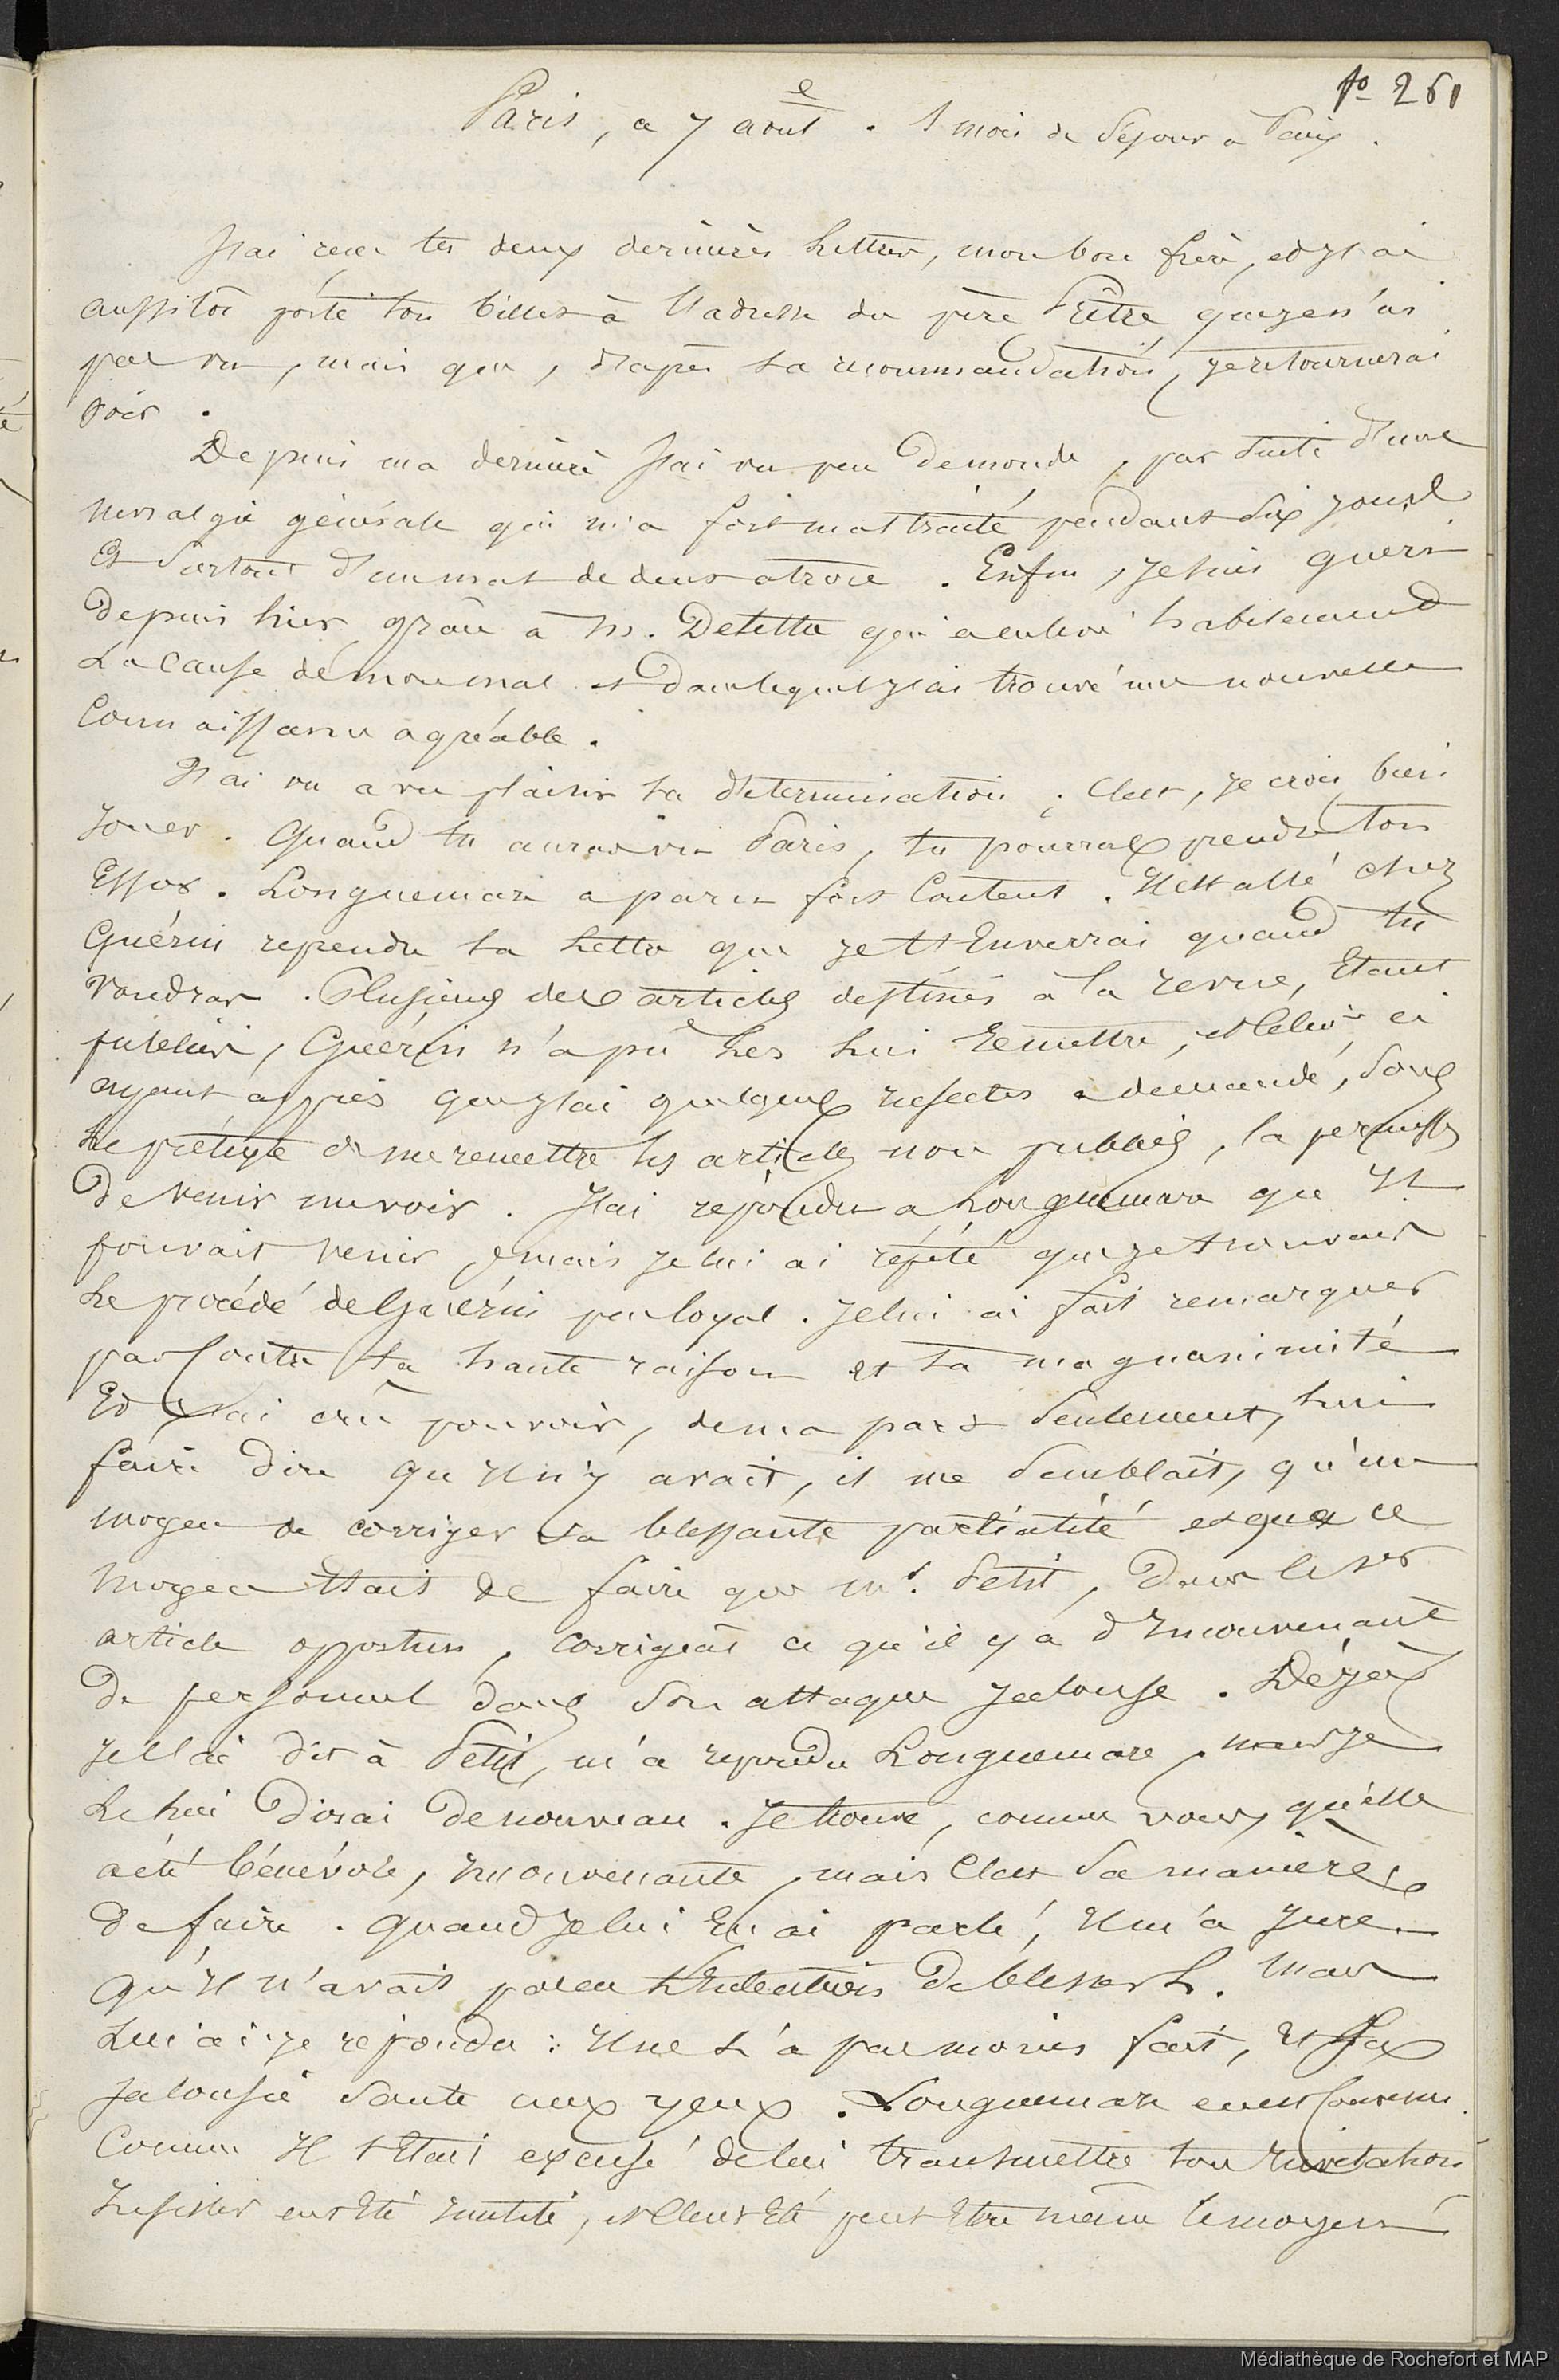 fo 261
Paris, a 7 août. 1 mois de Séjour a Paris.
J'ai reçu tes deux dernières Lettres, mon bon frère, et J'ai
aussitôt porté ton billet à l'adresse du père Prêtre que je n'ai
pas vu, mais que, d'après ta recommandation, je retournerai
voir.
Depuis ma dernière J'ai vu peu de monde, par suite d'une
nevralgie générale qui m'a fort maltraité pendant six jours
Et surtout d'un mal de dents atroce. Enfin, je suis gueri
depuis hier grâce à M. qui a enlevé habilement
La Cause de mon mal et dans lequel J'ai trouvé une nouvelle
Connaissance agréable.
J'ai vu avec plaisir ta détermination; C'est, je crois, bien
Jouer. Quand tu auras vu Paris, tu pourras prendre ton
Essor. Longuemare a paru fort Content. Il est allé chez
Guérin reprendre ta Lettre que je t'Enverrai quand tu
voudras. Plusieurs des articles destinés à la revue, Etant
publiés, Guérin n'a pu Les Lui remettre, et Celui-ci
ayant appris que J'ai quelques insectes a demandé, sous
Le prétexte de me remettre les articles non publiés, la permission
de venir me voir. J'ai répondu a Longuemare qu'Il
pouvait venir, mais je lui ai répété que je trouvais
Le procédé de Guérin peu loyal. Je lui ai fait remarquer
par Contre ta haute raison et ta magnanimité
Et J'ai cru pouvoir, de ma part seulement, Lui
faire dire qu'Il n'y avait, il me semblait, qu'un
moyen de corriger sa blessante partialité et que ce
moyen Etait de faire que Mr. Petit, dans le 1er
article opportun, corrigeât ce qu'il y a d'Inconvenant
de personnel dans son attaque Jalouse. Déjà
Je l'ai dit à Petit, m'a répondu Longuemare, mais je
Le lui dirai de nouveau. Je trouve, comme vous, qu'elle
a été bénévole, Inconvenante, mais C'est sa manière
de faire. Quand Je lui En ai parlé, Il m'a Juré
qu'Il n'avait pas eu l'Intention de blesser L. Mais
Lui ai-je répondu: Il ne L'a pas moins fait, Et sa
Jalousie saute aux yeux. Longuemare en est Convenu.
Comme Il s'Etait excusé de lui transmettre ton Invitation
Insister eut Eté Inutile, et C'eut Eté peut Etre même le moyen